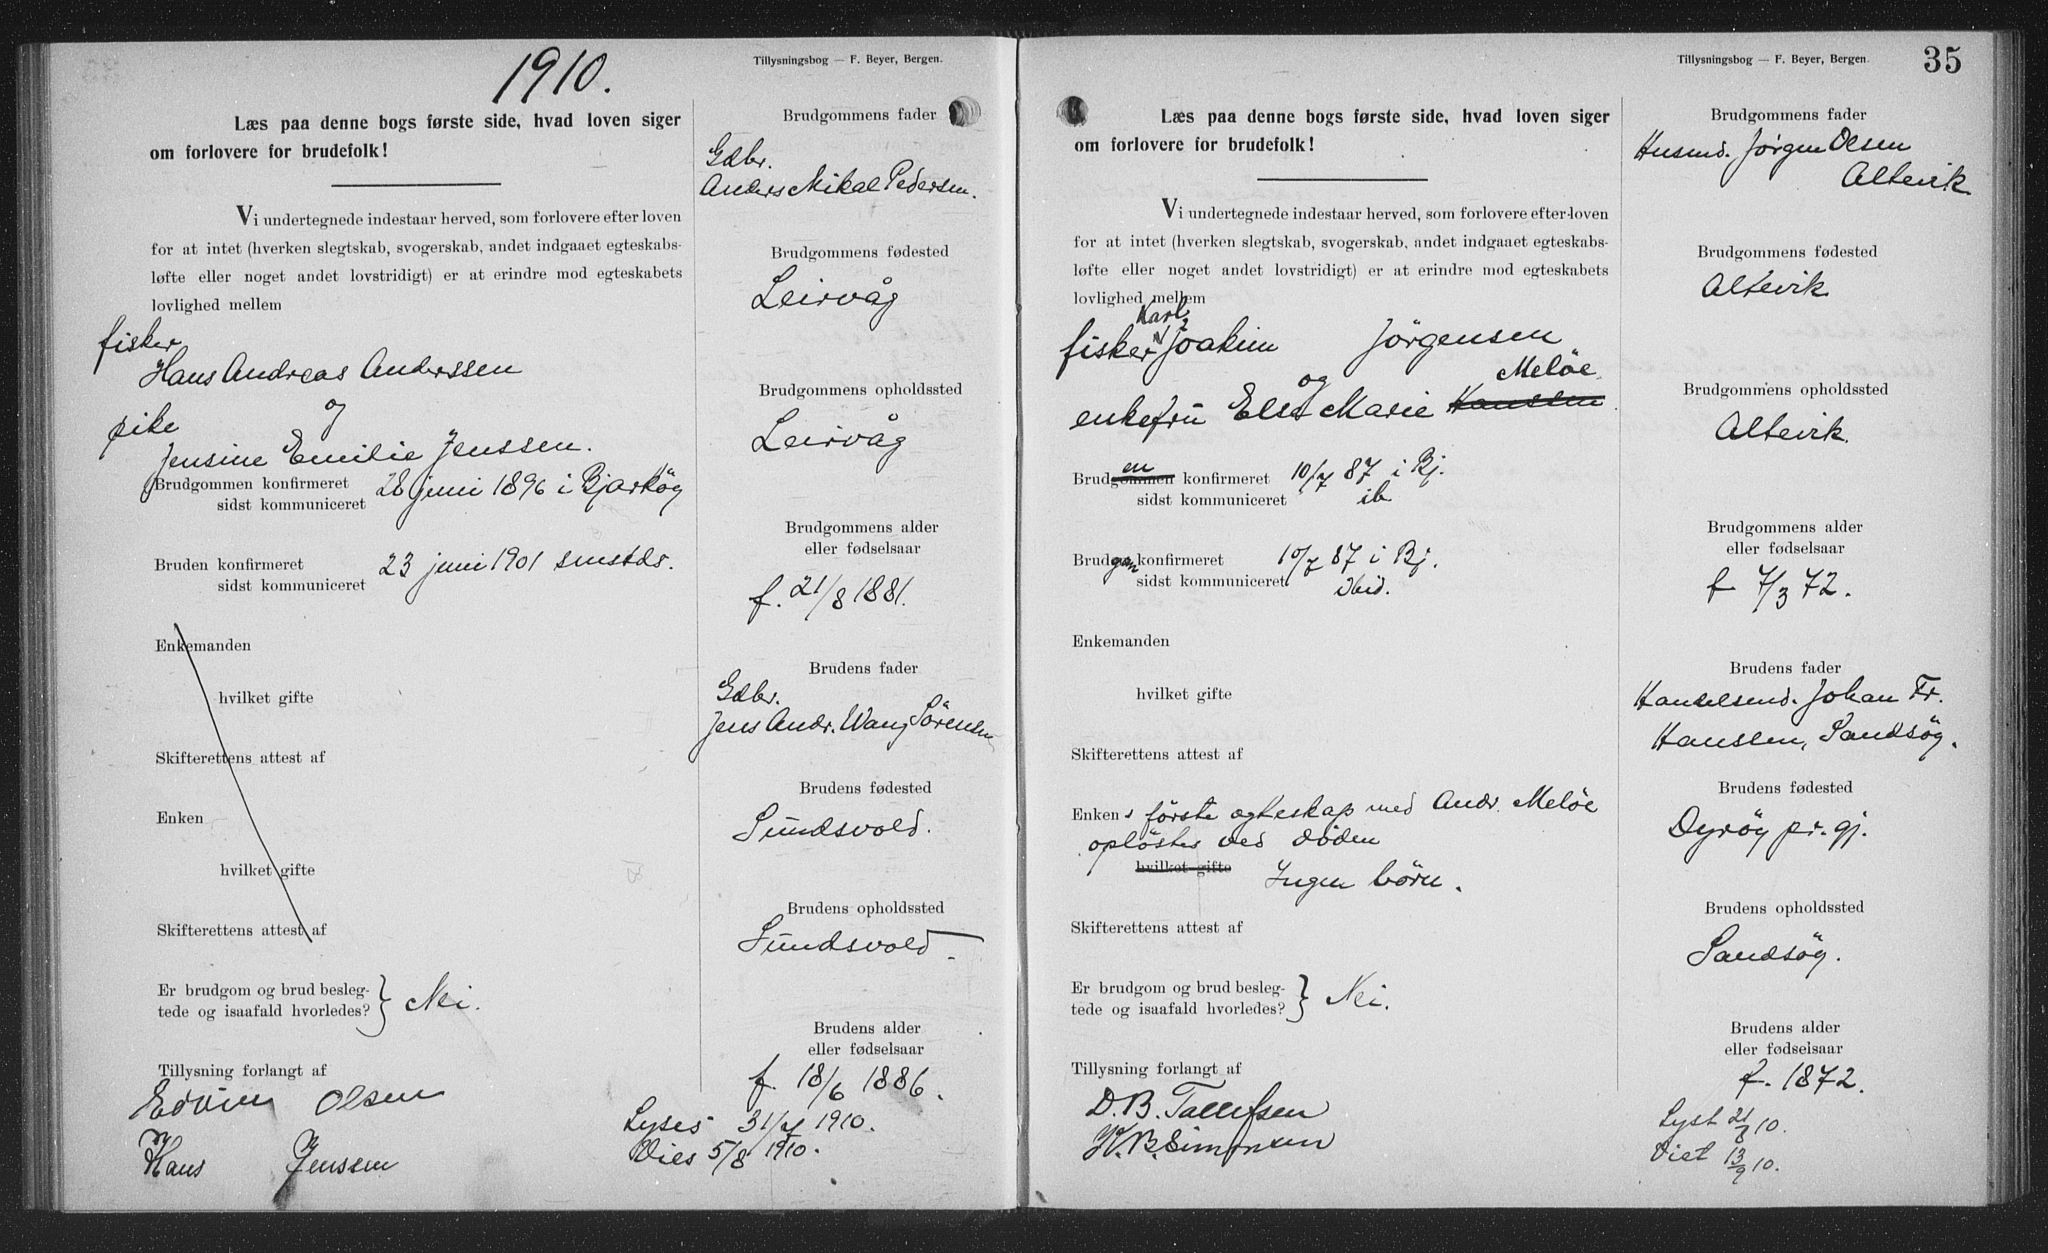 1910.
Tillysningsbog — F. Beyer, Bergen.
Læs paa denne bogs første side, hvad loven siger
om forlovere for brudefolk!
Vi undertegnede indestaar herved, som forlovere efter loven
for at intet (hverken slegtskab, svogerskab, andet indgaaet egteskabs-
løfte eller noget andet lovstridigt) er at erindre mod egteskabets
lovlighed mellem
fisker
Hans Andreas Anderssen
og
pike
Jensine Emilie Jenssen.
Brudgommen konfirmeret 28 juni 1896 i Bjarköy
sidst kommuniceret
Bruden konfirmeret 23 juni 1901 smstds.
sidst kommuniceret
Enkemanden
hvilket gifte
Skifterettens attest af
Enken
hvilket gifte
Skifterettens attest af
Er brudgom og brud besleg-
tede og isaafald hvorledes? } Nei.
Tillysning forlangt af
Edvin Olsen
Hans Jenssen
Brudgommens fader
Gdbr.
Anders Mikal Pedersen.
Brudgommens fødested
Leirvåg
Brudgommens opholdssted
Leirvåg
Brudgommens alder
eller fødselsaar
f. 21/8 1881.
Brudens fader
Gdbr.
Jens Andr. Wang Sörensen
Brudens fødested
Sundsvold.
Brudens opholdssted
Sundsvold.
Brudens alder
eller fødselsaar
f. 18/6 1886.
Lyses 31/7 1910.
Vies 5/8 1910.
Tillysningsbog — F. Beyer, Bergen.
35
Læs paa denne bogs første side, hvad loven siger
om forlovere for brudefolk!
Vi undertegnede indestaar herved, som forlovere efter loven
for at intet (hverken slegtskab, svogerskab, andet indgaaet egteskabs-
løfte eller noget andet lovstridigt) er at erindre mod egteskabets
lovlighed mellem
Karl
fisker Joakim Jörgensen
og Meløe
enkefru Else Marie Hanssen
en
Brudgommen konfirmeret 10/7 87 i Bj.
sidst kommuniceret ib
Brudgom konfirmeret 10/7 87 i Bj.
sidst kommuniceret ibid.
Enkemanden
hvilket gifte
Skifterettens attest af
Enkens förste egteskap med Andr. Meløe
oplöstes ved døden
hvilket gifte Ingen börn.
Skifterettens attest af
Er brudgom og brud besleg-
tede og isaafald hvorledes? } Nei.
Tillysning forlangt af
D. B. Tollefsen
K. B. Simonsen
Brudgommens fader
Husmd. Jörgen Olsen
Altevik
Brudgommens fødested
Altevik
Brudgommens opholdssted
Altevik.
Brudgommens alder
eller fødselsaar
f 7/3 72.
Brudens fader
Handelsmd. Johan Fr.
Hanssen, Sandsöy.
Brudens fødested
Dyröy pr. gj.
Brudens opholdssted
Sandsöy.
Brudens alder
eller fødselsaar
f. 1872.
Lyst 21/8 10.
Viet 13/9 10.